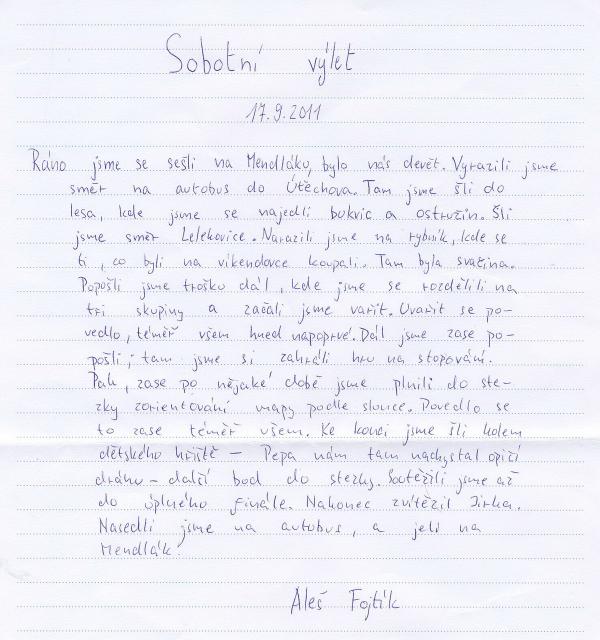 Sobotní výlet
17.9.2011
Ráno jsme se sešli na Mendláku, bylo nás devět. Vyrazili jsme
směr na autobus do Útěchova. Tam jsme šli do
lesa, kde jsme se najedli bukvic a ostružin. Šli
jsme směr Lelekovice. Narazili jsme na rybník, kde se
ti, co byli na víkendovce koupali. Tam byla svačina.
Popošli jsme trošku dál, kde jsme se rozdělili na
tři skupiny a začali jsme vařit. Uvařit se po-
vedlo, téměř všem hned napoprvé. Dál jsme zase po-
pošli, tam jsme si zahráli hru na stopování.
Pak, zase po nějaké době jsme plnili do ste-
zky zorientování mapy podle slunce. Povedlo se
to zase téměř všem. Ke konci jsme šli kolem
dětského hřiště – Pepa nám tam nachystal opičí
dráhu – další bod do stezky. Soutěžili jsme až
do úplného finále. Nakonec zvítězil Jirka.
Nasedli jsme na autobus, a jeli na
Mendlák.
Aleš Fojtík